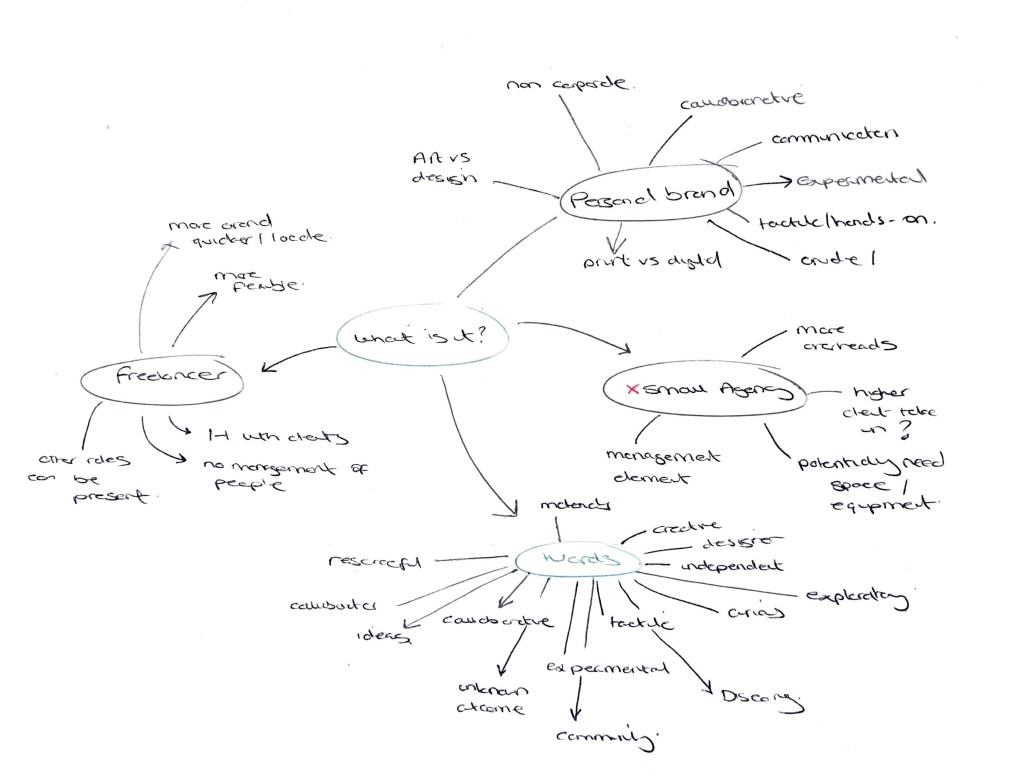 non corporate.
collaborative
communication
Art vs
design
Personal brand
Experimental
tactile/hands-on.
crude /
print vs digital
more around
quicker / locate.
more
flexible.
what is it?
freelancer
1-1 with clients
no management of
people
other roles
can be
present.
more
overheads
x small Agency
higher
client take
on ?
management
element
potentially need
space /
equipment.
materials
words
creative
designer
independent
resourceful
exploratory
collaborator
ideas
collaborative
tactile
curious
experimental
unknown
outcome
Discovery.
community.